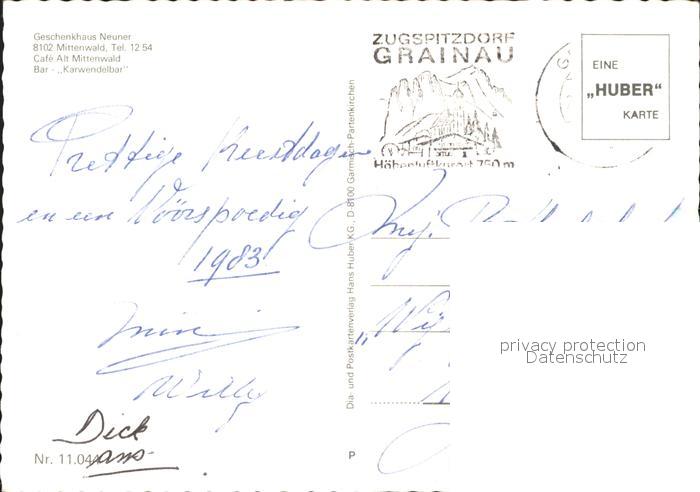 Geschenkhaus Neuner
8102 Mittenwald, Tel. 12 54
Café Alt Mittenwald
Bar - „Karwendelbar"
ZUGSPITZDORF
GRAINAU
Höhenluftkurort 750 m
EINE
„HUBER"
KARTE
Prettige Kerstdagen
en een Vöörspoedig
1983
Willy
Dick
ans
Nr. 11.04
Dia- und Postkartenverlag Hans Huber KG., D-8100 Garmisch-Partenkirchen
P
privacy protection
Datenschutz